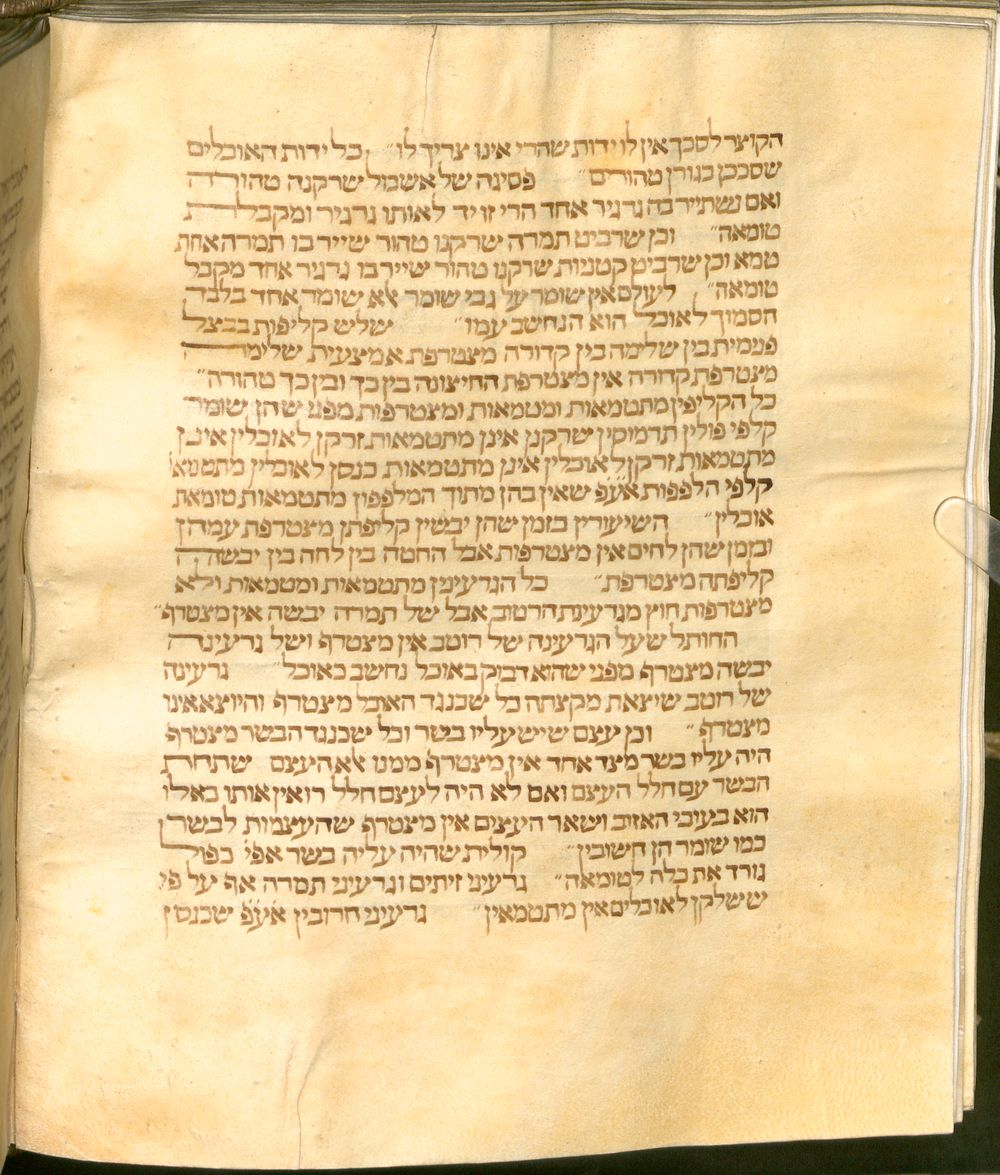 הקוצר לסכך אין לו ידות שהרי אינו צריך לו״ כל ידות האוכלים
שסככן בגורן טהורים״ פסיגה של אשכול שרקנה טהורה
ואם נשתייר בה גרגיר אחד הרי זו יד לאותו גרגיר ומקבלת
טומאה״ וכן שרביט תמרה שרקנו טהור שייר בו תמרה אחת
טמא וכן שרביט קטניות שרקנו טהור שייר בו גרגיר אחד מקבל
טומאה״ לעולם אין שומר על גבי שומר אלא שומר אחד בלבד
הסמוך לאוכל הוא הנחשב עמו״ שלש קליפות בבצל
פנימית בין שלימה בין קדורה מצטרפת אמצעית שלימה
מצטרפת קדורה אין מצטרפת החיצונה בין כך ובין כך טהורה״
כל הקליפין מתטמאות ומטמאות ומצטרפות מפני שהן שומר
קלפי פולין תרמוסין שרקנן אינן מתטמאות זרקן לאוכלין אינן
מתטמאות זרקן לאוכלין אינן מתטמאות כנסן לאוכלין מתטמאו
קלפי הלפפות אעפ שאין בהן מתוך המלפפון מתטמאות טומאת
אוכלין״ השיעורין בזמן שהן יבשין קליפתן מצטרפת עמהן
ובזמן שהן לחים אין מצטרפות אבל החטה בין לחה בין יבשה
קליפתה מצטרפת״ כל הגרעינין מתטמאות ומטמאות ולא
מצטרפות חוץ מגרעינת הרטוב אבל של תמרה יבשה אין מצטרף״
החותל שעל הגרעינה של רוטב אין מצטרף ושל גרעינה
יבשה מצטרף מפני שהוא דבוק באוכל נחשב כאוכל״ גרעינה
של רוטב שיצאת מקצתה כל שכנגד האוכל מצטרף והיוצא אינו
מצטרף״ וכן עצם שיש עליו בשר וכל שכנגד הבשר מצטרף
היה עליו בשר מצד אחד אין מצטרף ממנו אלא העצם שתחת
הבשר עם חלל העצם ואם לא היה לעצם חלל רואין אותו כאלו
הוא בעובי האזוב ושאר העצים אין מצטרף שהעצמות לבשר
כמו שומר הן חשובין״ קולית שהיה עליה בשר אפי׳ כפול
גורד את כלה לטומאה״ גרעיני זיתים וגרעיני תמרה אף על פי
ששלקן לאוכלים אין מתטמאין״ גרעיני חרובין אעפ שכנסן